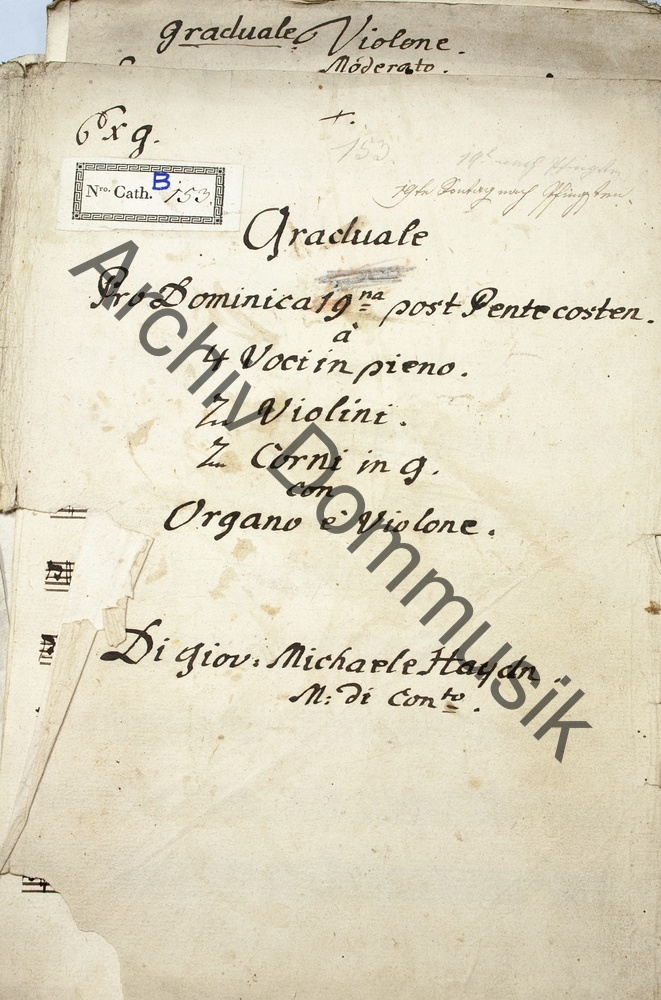 Graduale Violone.
Moderato.
+.
153.
19te Sontag nach Pfingsten.
Nro. Cath. B 153.
Graduale
Pro Dominica 19na post Pentecosten.
à
4 Voci in pieno.
2 Violini.
2 Corni in g.
con
Organo è Violone.
Di Giov: Michaele Haydn.
M: di Conto.
Archiv Dommusik